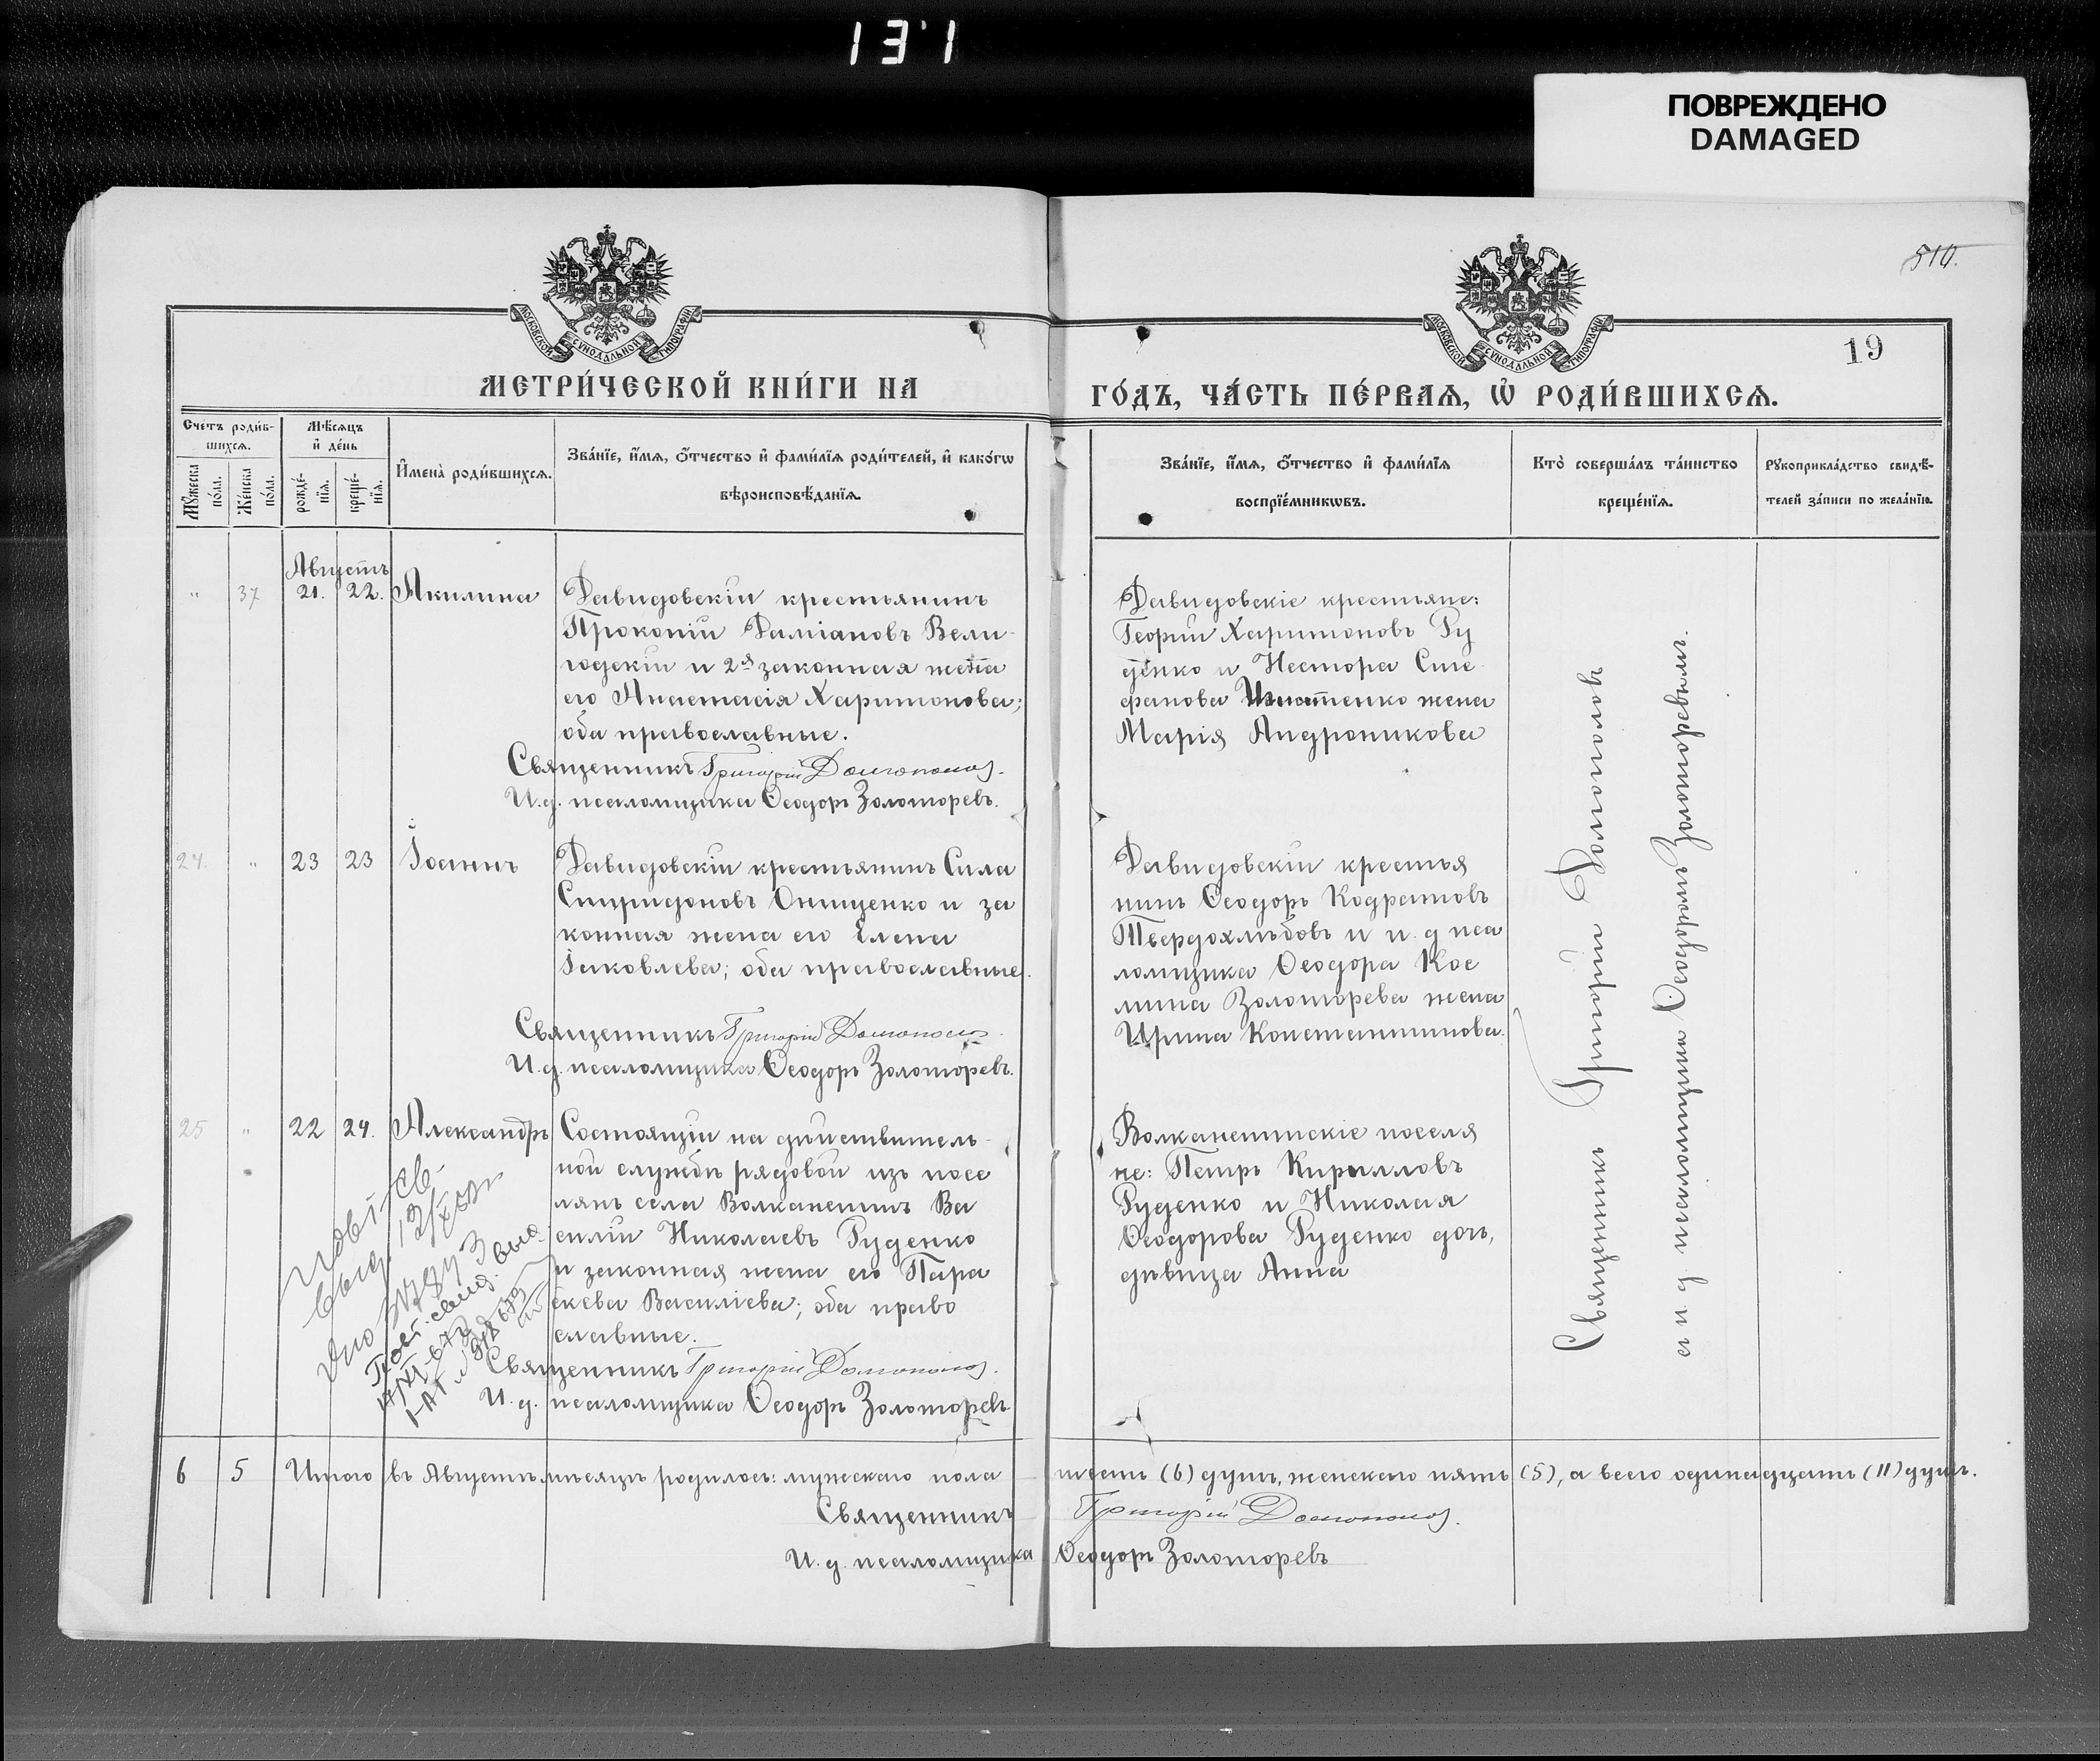 131
ПОВРЕЖДЕНО
DAMAGED
510.
19
МОСКОВСКОЙ СУНОДАЛЬНОЙ ТИПОГРАФІИ
МОСКОВСКОЙ СУНОДАЛЬНОЙ ТИПОГРАФІИ
МЕТРИ́ЧЕСКОЙ КНИ́ГИ НА
ГО́ДЪ, ЧА́СТЬ ПЕ́РВАѦ, Ѡ҆ РОДИ́ВШИХСѦ.
Сче́тъ роди́в-
шихсѧ.
Мѣ́сѧцъ
и҆ де́нь
Мꙋ́жеска по́ла.
Же́нска по́ла.
рожде́-
нїѧ.
креще́-
нїѧ.
И҆мена̀ роди́вшихсѧ.
Зва́нїе, и҆́мѧ, ѻ҆́тчество и҆ фами́лїѧ роди́телей, и҆ како́гѡ
вѣроисповѣ́данїѧ.
Зва́нїе, и҆́мѧ, ѻ҆́тчество и҆ фами́лїѧ
воспрїе́мникѡвъ.
Кто̀ соверша́лъ та́инство
креще́нїѧ.
Рꙋкоприкла́дство свидѣ́-
телей за́писи по жела́нїю.
Августъ
" 37 21. 22. Акилина
Давидовскій крестьянинъ
Прокопій Даміановъ Вели-
годскій и 2я законная жена
его Анастасія Харитонова;
оба православные.
Священникъ Григорій Долгополов.
И.д. псаломщика Ѳеодоръ Золоторевъ.
Давидовскіе крестьяне:
Георгій Харитоновъ Ру
денко и Нестора Сте
фанова Игнатенко жена
Марія Андроникова
24. " 23 23 Іоаннъ
Давидовскій крестьянинъ Сила
Спиридоновъ Онищенко и за
конная жена его Елена
Іаковлева; оба православные.
Священникъ Григорій Долгополов.
И.д. псаломщика Ѳеодоръ Золоторевъ.
Давидовскій крестья
нинъ Ѳеодоръ Кодратовъ
Твердохлѣбовъ и и.д пса
ломщика Ѳеодора Кос
мина Золоторева жена
Ирина Константинова.
25 " 22 24. Александръ
Состоящій на дѣйствитель-
ной службѣ рядовой изъ посе
лянъ села Волканешты Ва
силій Николаевъ Руденко
и законная жена его Пара
скева Василіева; оба право
славные.
Священникъ Григорій Долгополов.
И.д. псаломщика Ѳеодоръ Золоторевъ
Волканештскіе поселя
не: Петръ Кирилловъ
Руденко и Николая
Ѳеодорова Руденко дочь,
дѣвица Анна
Священникъ Григорій Долгополовъ
съ и д псаломщика Ѳеодоромъ Золоторевымъ.
6 5 Итого въ Августѣ мѣсяцѣ родилось: мужескаго пола шесть (6) душъ, женскаго пять (5), а всего одинадцать (11) душъ.
Священникъ Григорій Долгополов.
И.д. псаломщика Ѳеодоръ Золоторевъ